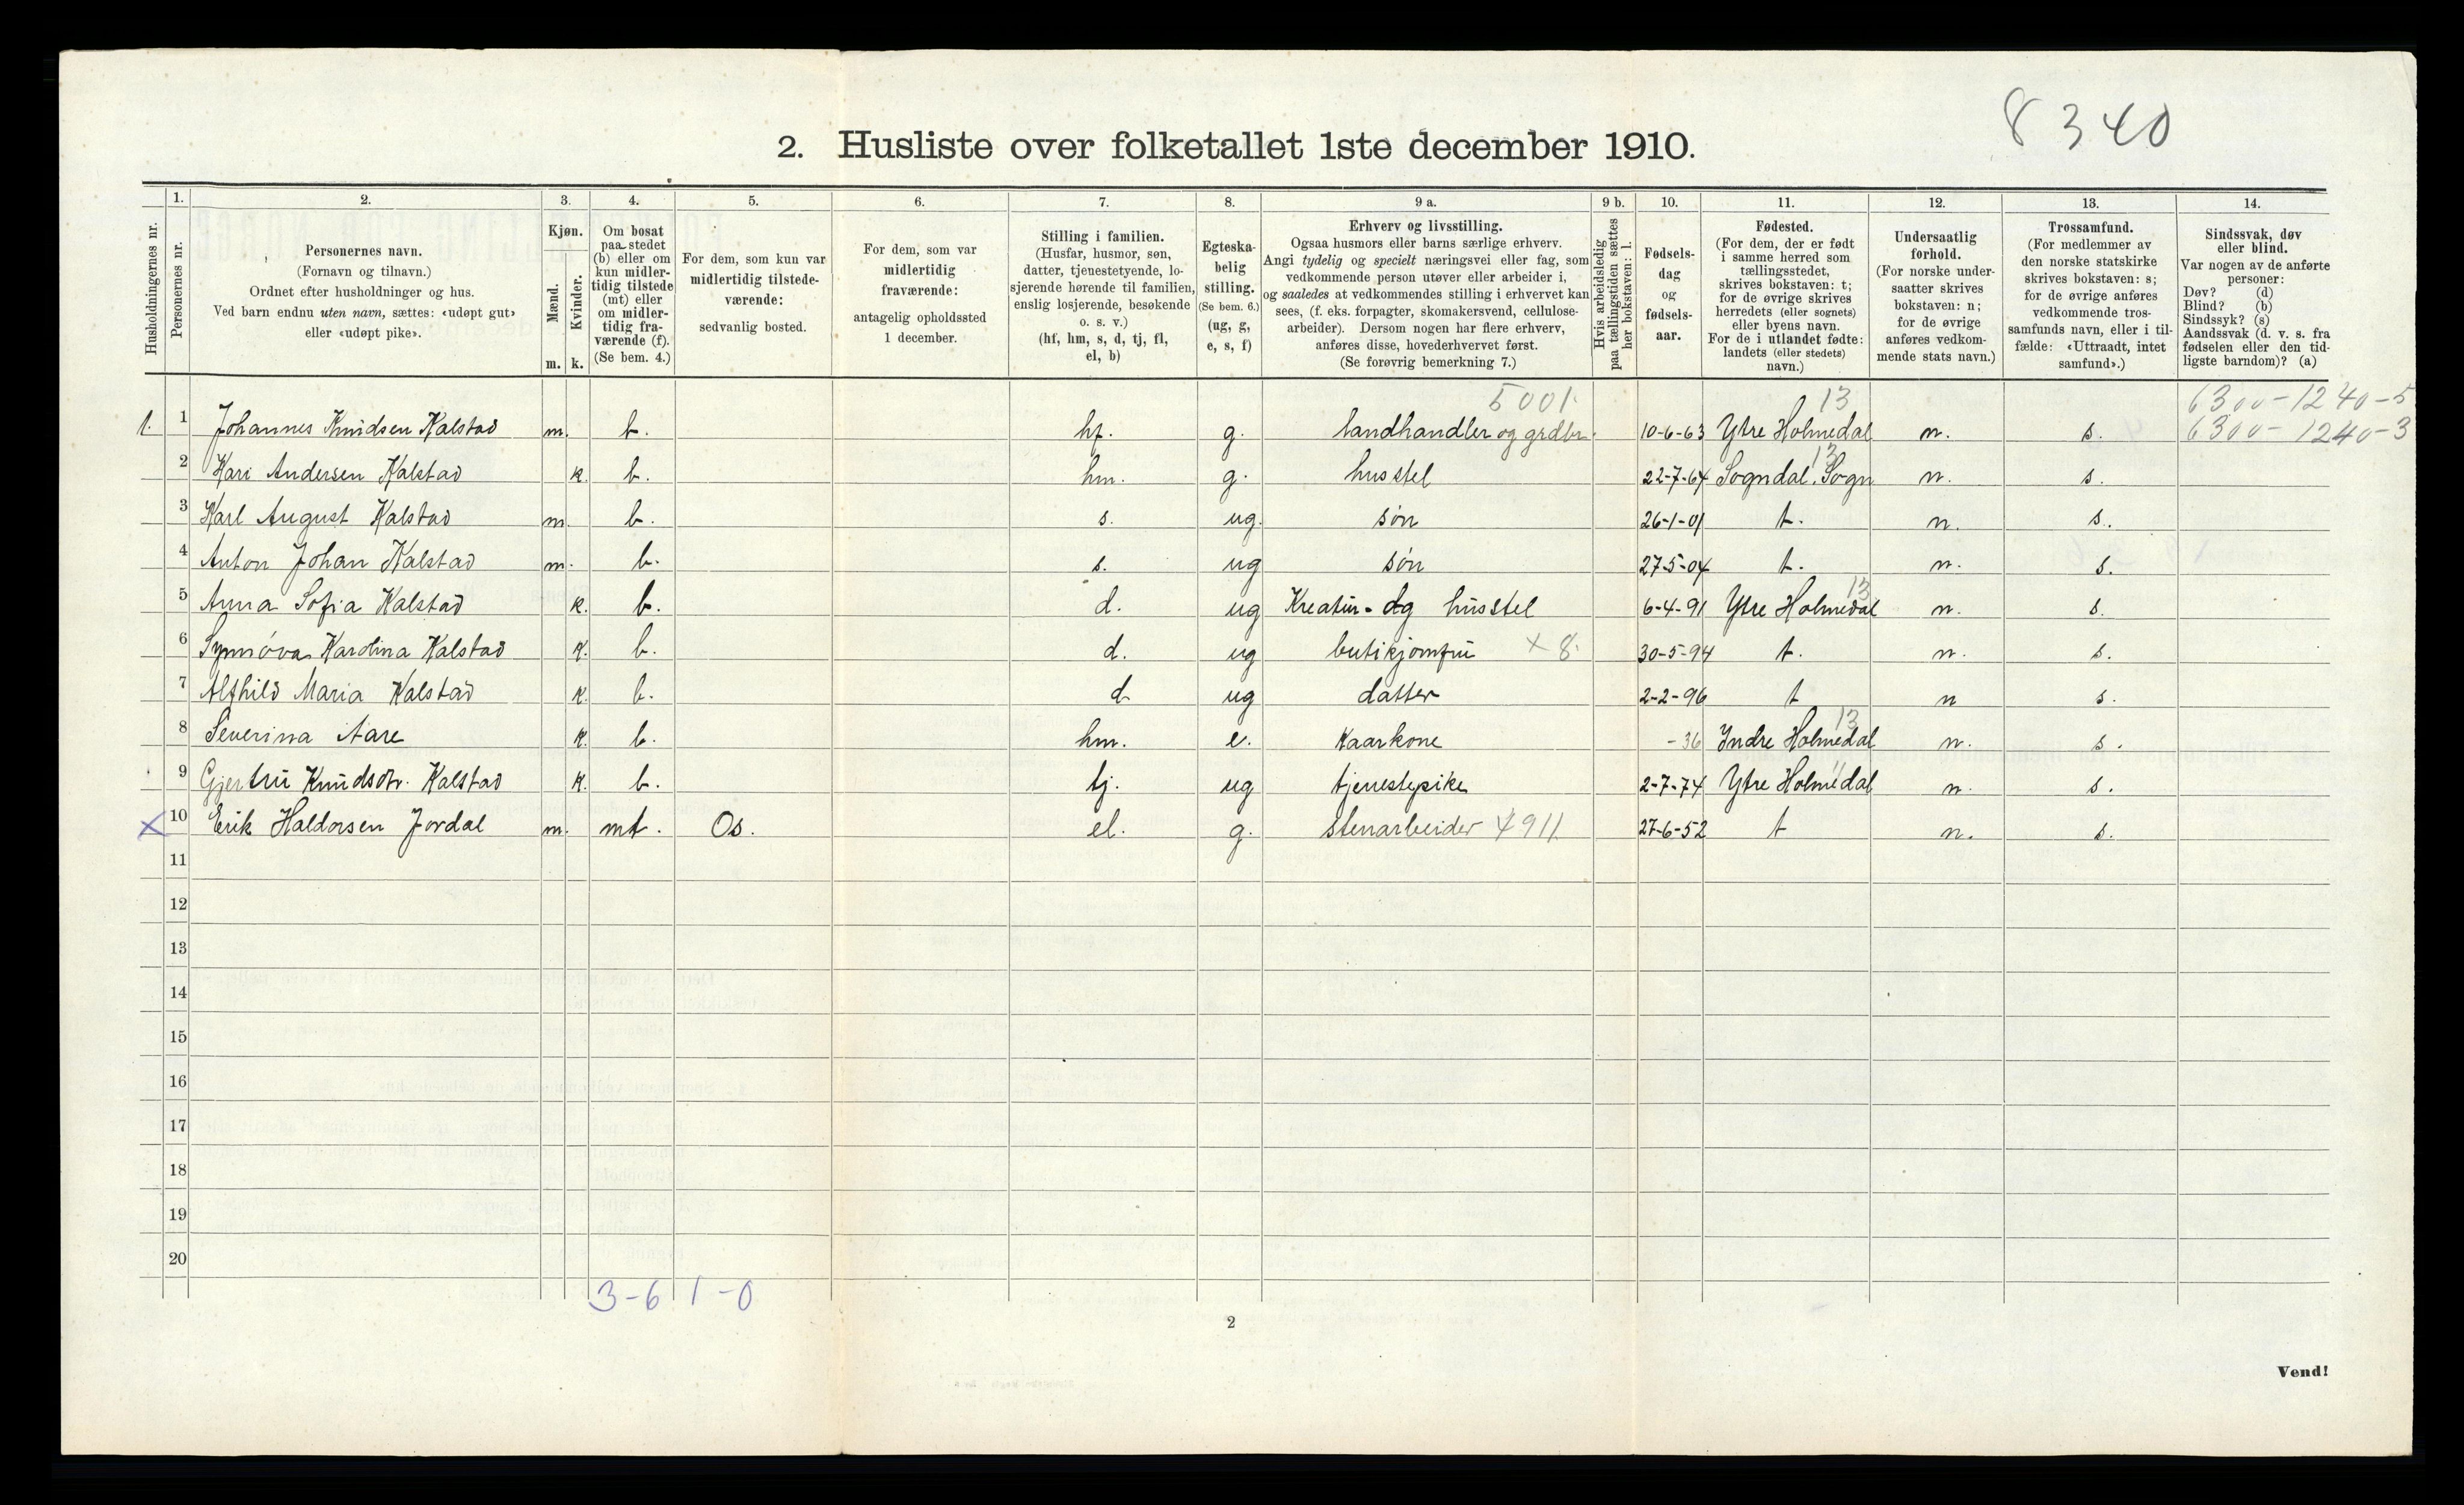 8340
2. Husliste over folketallet 1ste december 1910.
Husholdningernes nr.
1.
Personernes nr.
2.
Personernes navn.
(Fornavn og tilnavn.)
Ordnet efter husholdninger og hus.
Ved barn endnu uten navn, sættes: «udøpt gut»
eller «udøpt pike».
3.
Kjøn.
Mænd.
Kvinder.
m. k.
4.
Om bosat
paa stedet
(b) eller om
kun midler-
tidig tilstede
(mt) eller
om midler-
tidig fra-
værende (f).
(Se bem. 4.)
5.
For dem, som kun var
midlertidig tilstede-
værende:
sedvanlig bosted.
6.
For dem, som var
midlertidig
fraværende:
antagelig opholdssted
1 december.
7.
Stilling i familien.
(Husfar, husmor, søn,
datter, tjenestetyende, lo-
sjerende hørende til familien,
enslig losjerende, besøkende
o. s. v.)
(hf, hm, s, d, tj, fl,
el, b)
8.
Egteska-
belig
stilling.
(Se bem. 6.)
(ug, g,
e, s, f)
9 a.
Erhverv og livsstilling.
Ogsaa husmors eller barns særlige erhverv.
Angi tydelig og specielt næringsvei eller fag, som
vedkommende person utøver eller arbeider i,
og saaledes at vedkommendes stilling i erhvervet kan
sees, (f. eks. forpagter, skomakersvend, cellulose-
arbeider). Dersom nogen har flere erhverv,
anføres disse, hovederhvervet først.
(Se forøvrig bemerkning 7.)
9 b.
Hvis arbeidsledig
paa tællingstiden sættes
her bokstaven: l.
10.
Fødsels-
dag
og
fødsels-
aar.
11.
Fødested.
(For dem, der er født
i samme herred som
tællingsstedet,
skrives bokstaven: t;
for de øvrige skrives
herredets (eller sognets)
eller byens navn.
For de i utlandet fødte:
landets (eller stedets)
navn.)
12.
Undersaatlig
forhold.
(For norske under-
saatter skrives
bokstaven: n;
for de øvrige
anføres vedkom-
mende stats navn.)
13.
Trossamfund.
(For medlemmer av
den norske statskirke
skrives bokstaven: s;
for de øvrige anføres
vedkommende tros-
samfunds navn, eller i til-
fælde: «Uttraadt, intet
samfund».)
14.
Sindssvak, døv
eller blind.
Var nogen av de anførte
personer:
Døv? (d)
Blind? (b)
Sindssyk? (s)
Aandssvak (d. v. s. fra
fødselen eller den tid-
ligste barndom)? (a)
5001. 13 6300-1240-5
1. 1 Johannes Knudsen Kalstad m. b. hf. g. landhandler og grdbr. 10-6-63 Ytre Holmedal n. s. 6300-1240-3
13
2 Kari Andersen Kalstad k. b. hm. g. husstel 22-7-64 Sogndal, Sogn n. s.
3 Karl August Kalstad m. b. s. ug. søn 26-1-01 t. n. s.
4 Anton Johan Kalstad m. b. s. ug søn 27-5-04 t. n. s.
13
5 Anna Sofia Kalstad k. b. d. ug Kreatur- og husstel 6-4-91 Ytre Holmedal n. s.
6 Synnøva Karolina Kalstad k. b. d. ug butikjomfru × 8. 30-5-94 t. n. s.
7 Alfhild Maria Kalstad k. b. d. ug datter 2-2-96 t n s.
13
8 Severina Aare k. b. hm. e. kaarkone -36 Indre Holmedal n. s.
9 Gjertru Knudsdtr. Kalstad k. b. tj. ug tjenestepike 2-7-74 Ytre Holmedal n. s.
× 10 Erik Haldorsen Jordal m. mt. Os. el. g. stenarbeider 4911 27-6-52 t n. s.
11
12
13
14
15
16
17
18
19
20
3-6 1-0
2
Vend!